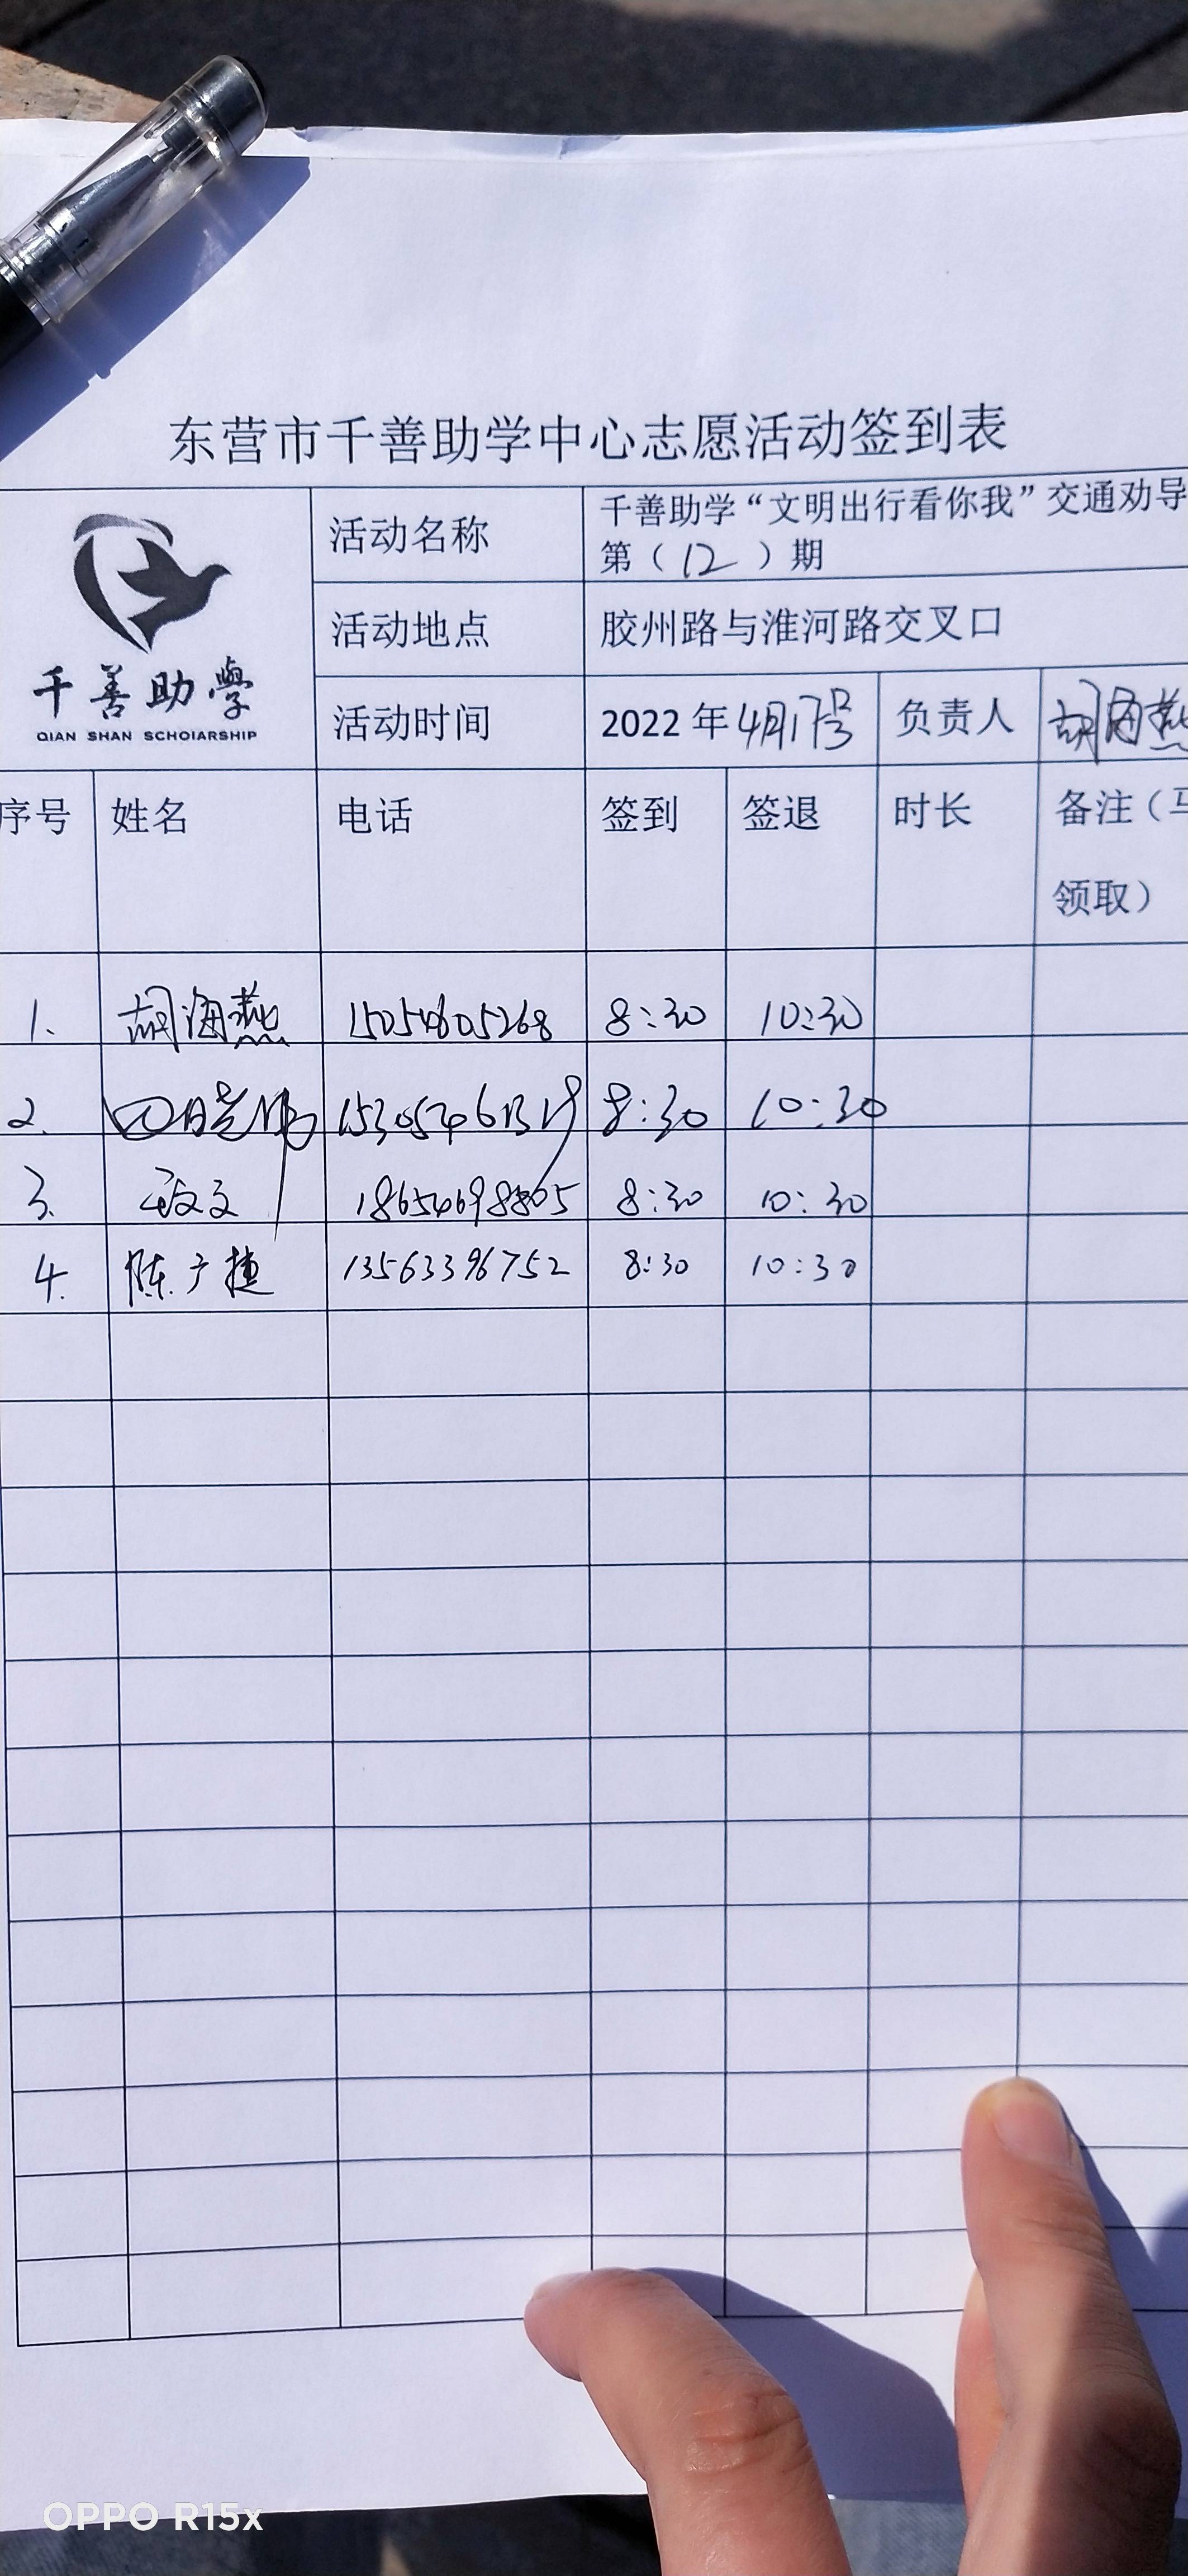 东营市千善助学中心志愿活动签到表
千善助學
QIAN SHAN SCHOIARSHIP
活动名称
千善助学“文明出行看你我”交通劝导
第（12）期
活动地点
胶州路与淮河路交叉口
活动时间
2022年4月17号
负责人
胡海燕
序号 姓名 电话 签到 签退 时长 备注（
领取）
1. 胡海燕 15054605268 8:30 10:30
2. 8:30 10:30
3. 8:30 10:30
4. 陈广捷 13563396752 8:30 10:30
OPPO R15x